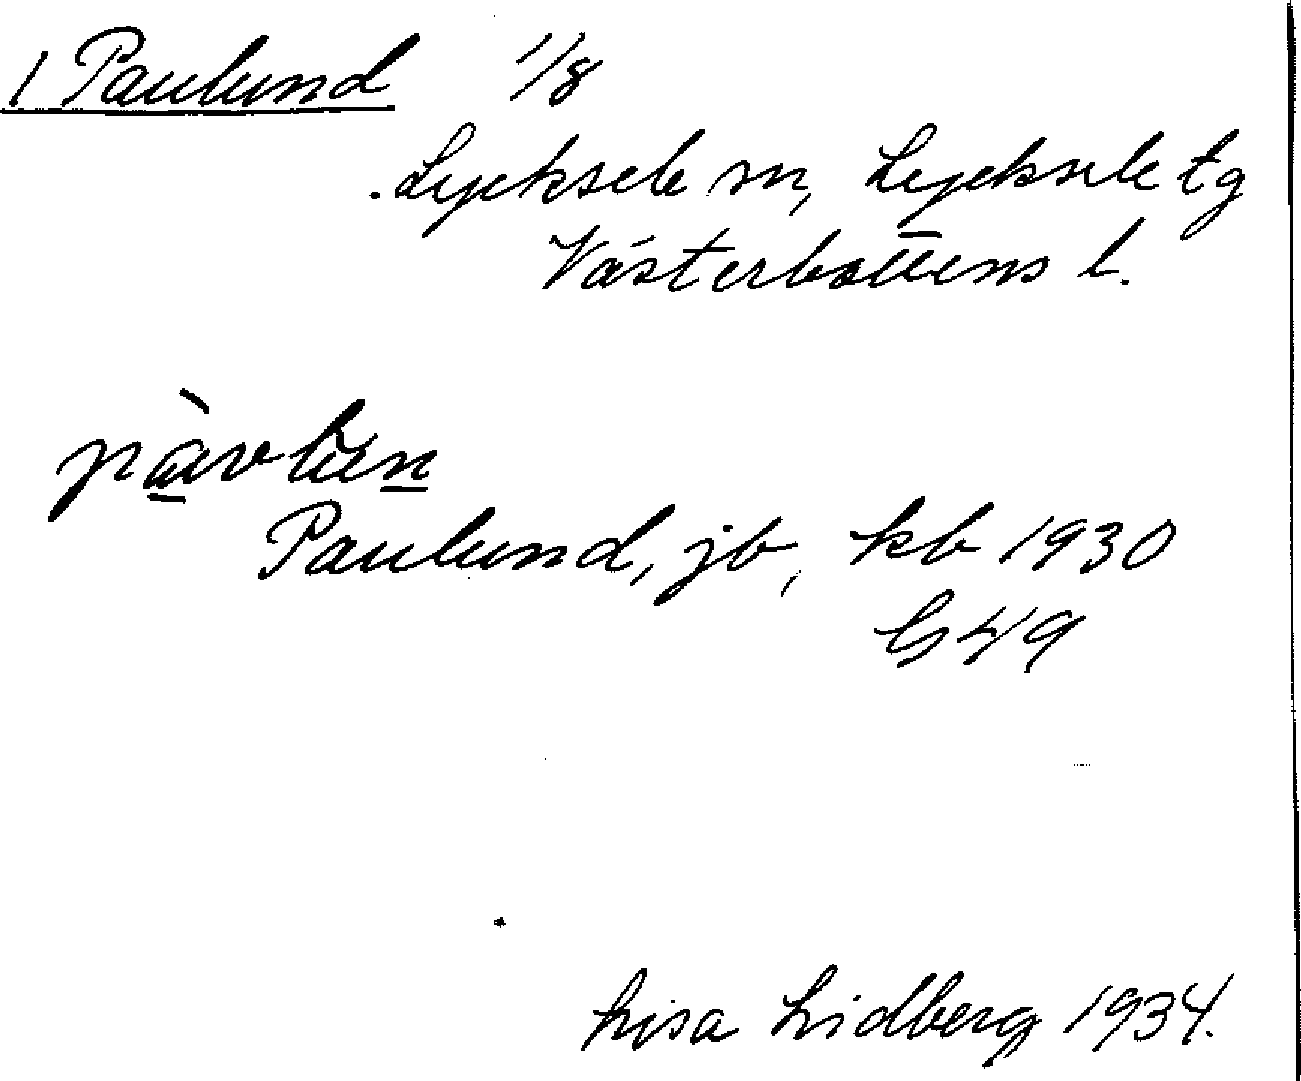 1 Paulund 1/8
Lycksele m, Lycksele tg
Västerbottens l.
Paulund, jb, kb 1930
G49
Lisa Lidberg 1934.